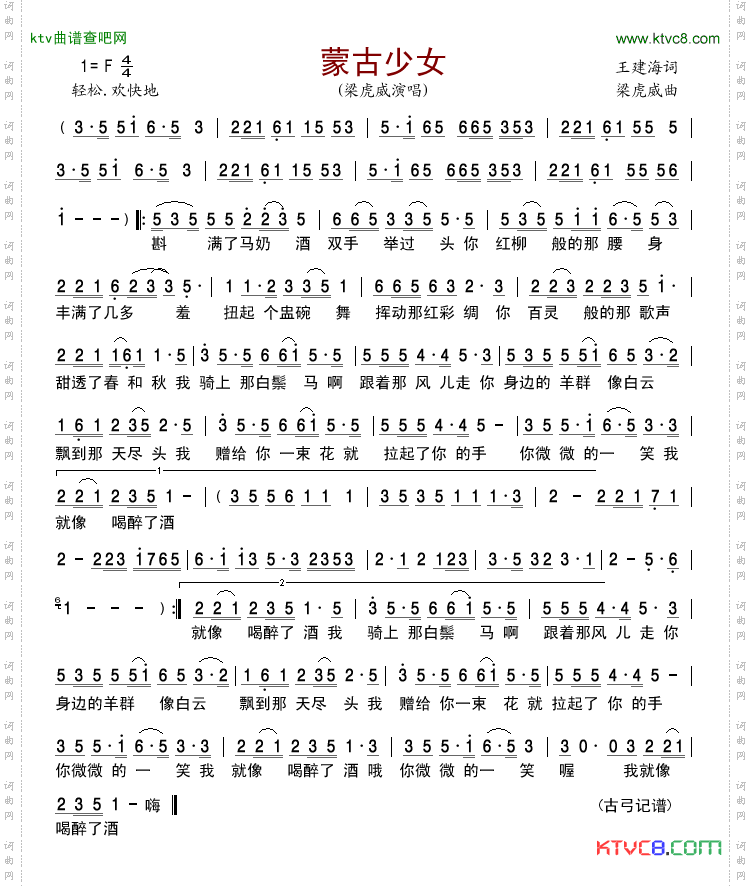 ktv曲谱查吧网
www.ktvc8.com
蒙古少女
1= F 4/4
王建海词
轻松.欢快地
(梁虎威演唱)
梁虎威曲
( 3·5 5i 6·5 3 | 221 61 15 53 | 5·i 65 665 353 | 221 61 55 5
3·5 5i 6·5 3 | 221 61 15 53 | 5·i 65 665 353 | 221 61 55 56
i - - - ) ‖: 535 55 223 5 | 665 335 5·5 | 535 5ii 6·5 53
斟 满了马奶 酒 双手 举过 头你 红柳 般的那 腰 身
221 6233 5· | 221·2 335 1 | 665 563 2·3 | 223 2235 i·
丰满了几多 羞 扭起 个盅碗 舞 挥动那红彩 绸 你 百灵 般的那 歌声
221 161 1·5 | 3·5·5 661 5·5 | 555 4·4 5·5 | 535 551 653·2
甜透了春 和 秋 我 骑上 那白鬃 马 啊 跟着那 风 儿走 你 身边的 羊群 像白云
161 235 2·5 | 3·5·5 661 5·5 | 555 4·4 5 - | 355·i 6·5 3·3
飘到那 天尽 头 我 赠给 你 一束 花 就 拉起了 你的 手 你微 微 的一 笑 我
1
221 235 1 - | (355611 1 | 335351 11·3 | 2 - 2 2 1 7 1
就像 喝醉了酒
2 - 223 1765 | 6·i i3 5·3 2353 | 2·1 2 123 | 3·5 32 3·1 | 2 - 5·6
2
6 1 - - - ) :‖ 221 235 1·5 | 3·5·5 661 5·5 | 555 4·4 5·3
就像 喝醉了 酒 我 骑上 那白鬃 马 啊 跟着那风 儿 走 你
535 551 653·2 | 161 235 2·5 | 3·5·5 661 5·5 | 555 4·4 5 -
身边的羊群 像白云 飘到那 天尽 头 我 赠给 你一束 花 就 拉起了 你 的 手
355·i 6·5 3·3 | 221 235 1·5 | 355·i 6·5 3 | 3 0· 03 221
你微微 的 一 笑 我 就像 喝醉了 酒 哦 你微 微的一 笑 喔 我就像
235 1 - 嗨 ‖
(古弓记谱)
喝醉了酒
KTVC8.COM